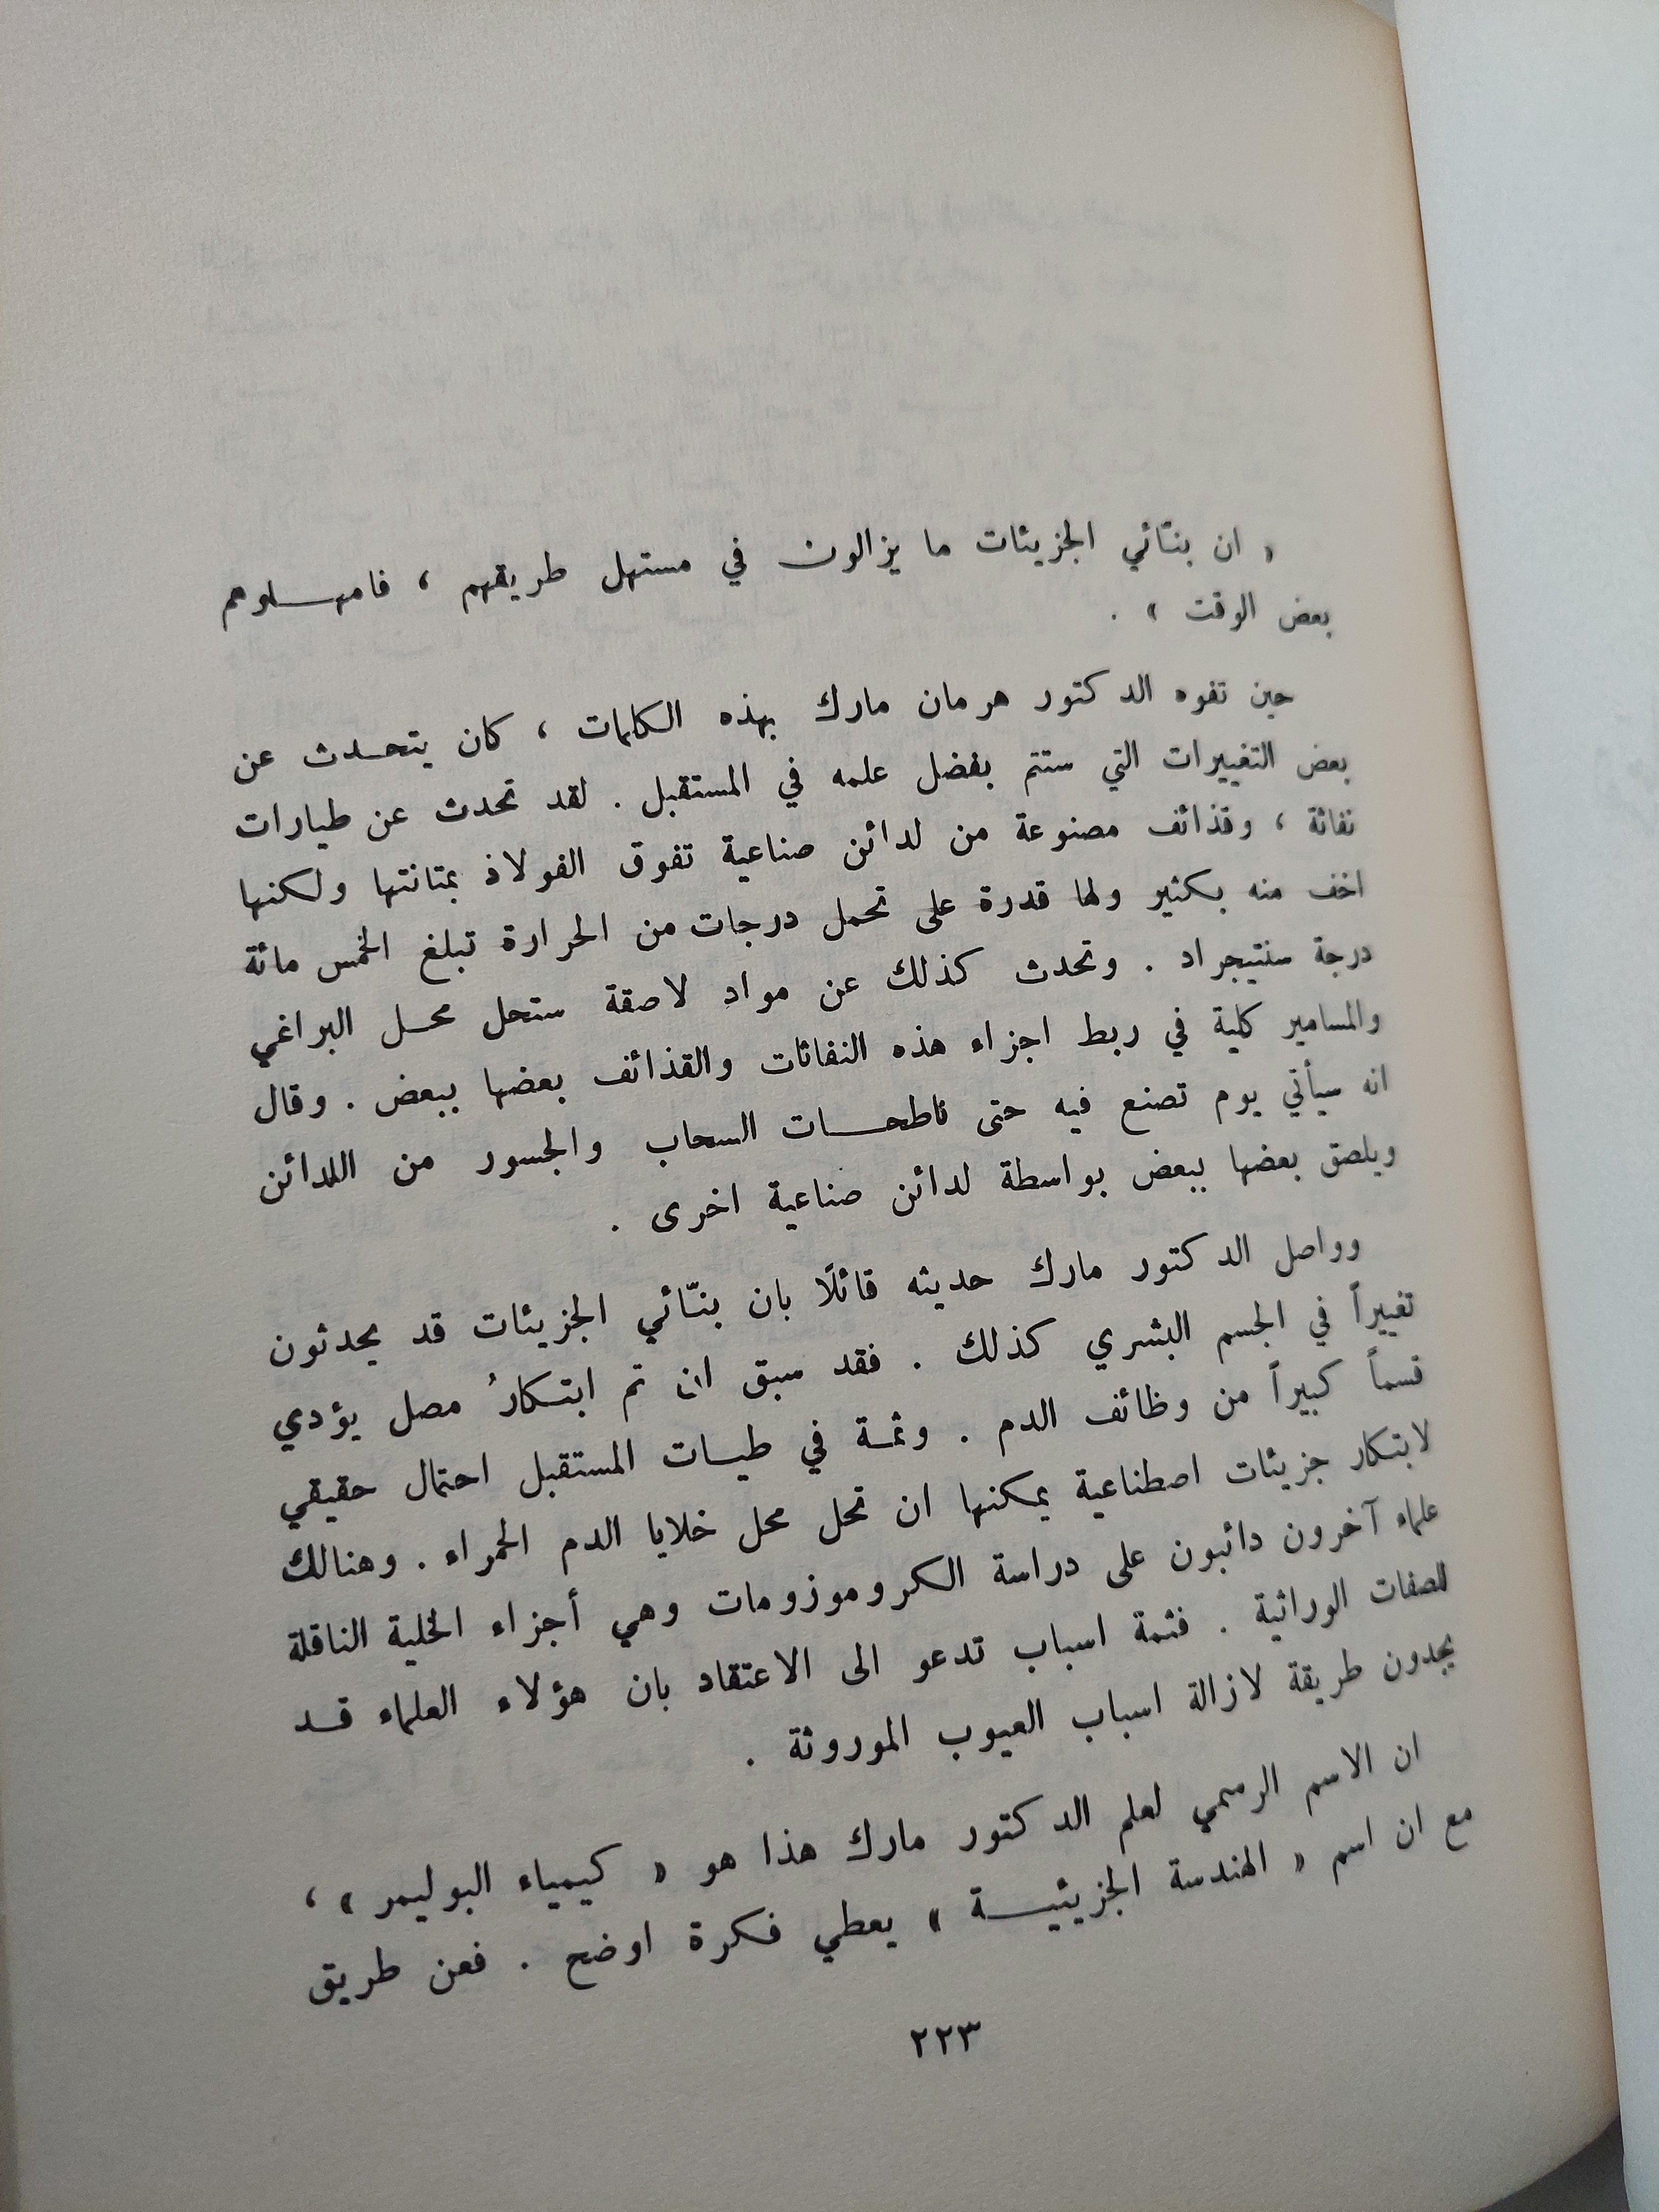 « ان بنّائي الجزيئات ما يزالون في مستهل طريقهم ، فامهلوهم
بعض الوقت » .
حين تفوه الدكتور هرمان مارك بهذه الكلمات ، كان يتحدث عن
بعض التغييرات التي ستتم بفضل علمه في المستقبل . لقد تحدث عن طيارات
نفاثة ، وقذائف مصنوعة من لدائن صناعية تفوق الفولاذ بمتانتها ولكنها
اخف منه بكثير ولها قدرة على تحمل درجات من الحرارة تبلغ الخمس مائة
درجة سنتيجراد . وتحدث كذلك عن مواد لاصقة ستحل محل البراغي
والمسامير كلية في ربط اجزاء هذه النفاثات والقذائف بعضها ببعض . وقال
انه سيأتي يوم تصنع فيه حتى ناطحات السحاب والجسور من اللدائن
ويلصق بعضها ببعض بواسطة لدائن صناعية اخرى .
وواصل الدكتور مارك حديثه قائلًا بان بنّائي الجزيئات قد يحدثون
تغييراً في الجسم البشري كذلك . فقد سبق ان تم ابتكارُ مصل يؤدي
قسماً كبيراً من وظائف الدم . وثمة في طيات المستقبل احتمال حقيقي
لابتكار جزيئات اصطناعية يمكنها ان تحل محل خلايا الدم الحمراء . وهنالك
علماء آخرون دائبون على دراسة الكروموزومات وهي أجزاء الخلية الناقلة
للصفات الوراثية . فثمة اسباب تدعو الى الاعتقاد بان هؤلاء العلماء قد
يجدون طريقة لازالة اسباب العيوب الموروثة .
ان الاسم الرسمي لعلم الدكتور مارك هذا هو « كيمياء البوليمر » ،
مع ان اسم « الهندسة الجزيئية » يعطي فكرة اوضح . فعن طريق
٢٢٣